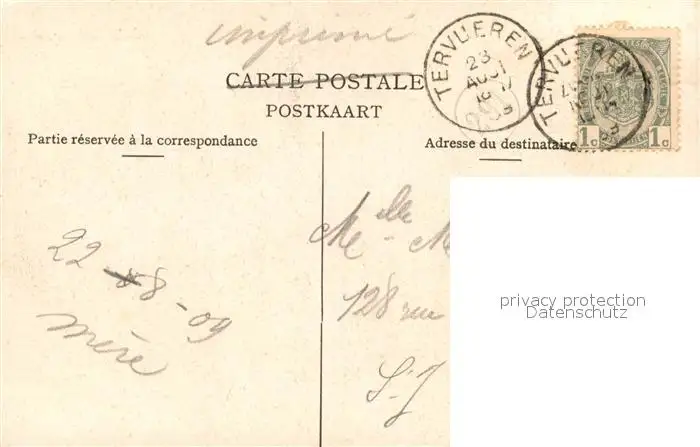 imprimé
CARTE POSTALE
POSTKAART
Partie réservée à la correspondance
Adresse du destinataire
TERVUEREN
23
AOUT
TERVUEREN
1c 1c
22-8-09
mère
Melle - M
128 rue
S.J
privacy protection
Datenschutz